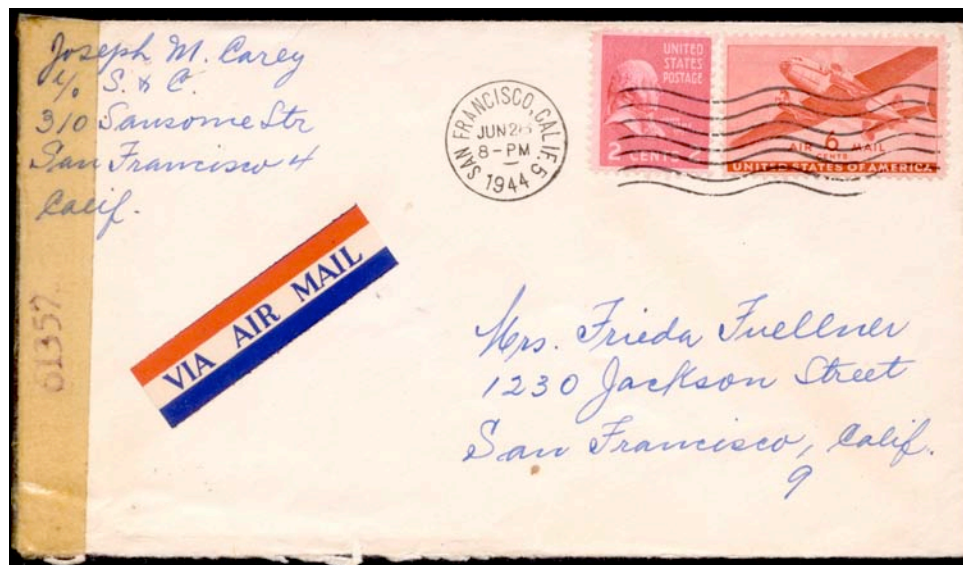 Joseph M. Carey
c/o S. & C.
310 Sansome Str
San Francisco 4
Calif.
SAN FRANCISCO, CALIF. 5
JUN
8-PM
1944
UNITED
STATES
POSTAGE
2 CENTS 2
AIR 6 MAIL
CENTS
UNITED STATES OF AMERICA
VIA AIR MAIL
01357
Mrs. Frieda Fuellner
1230 Jackson Street
San Francisco, Calif.
9